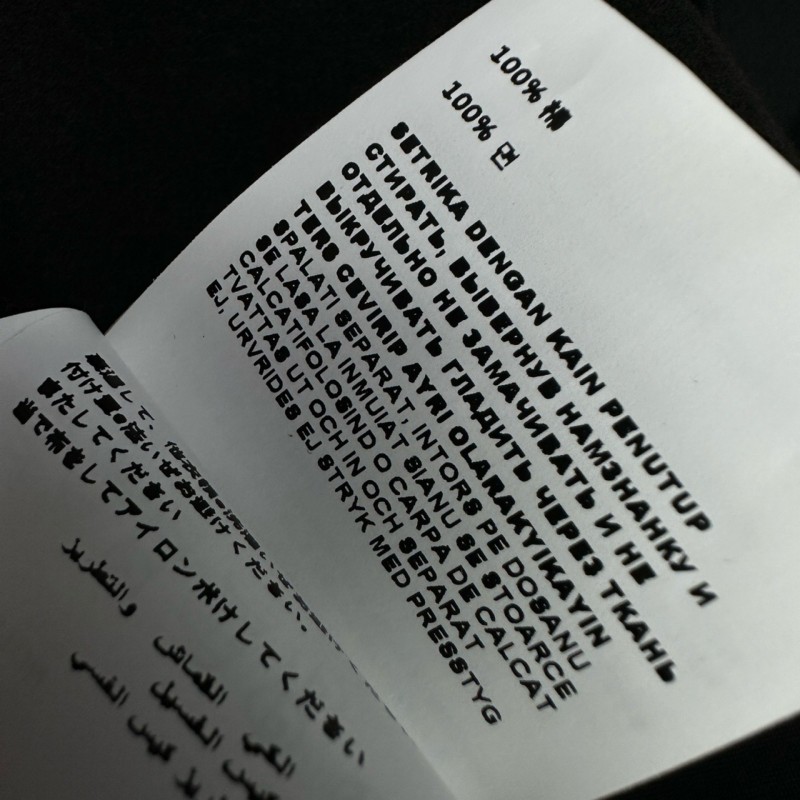 100% 棉
100% 면
SETRIKA DENGAN KAIN PENUTUP
СТИРАТЬ, ВЫВЕРНУВ НАМЗНАНКУ И
ОТДЕЛЬНО НЕ ЗАМАЧИВАТЬ И НЕ
ВЫКРУЧИВАТЬ ГЛАДИТЬ ЧЕРЕЗ ТКАНЬ
TERS CEVIRIP AYRI OLARAKYIKAYIN
SPALATI SEPARAT, INTORS PE DOSANU
SE LASA LA INMUIAT SIANU SE STOARCE
CALCATIFOLOSIND O CARPA DE CALCAT
TVATTAS UT OCH IN OCH SEPARAT
EJ, URVRIDES EJ STRYK MED PRESSTYG
して、
付け置き洗いはお避けください。
またしてください
当て布をしてアイロンがけしてください
والتطريز
القماش
الكي
الغسيل
كيس